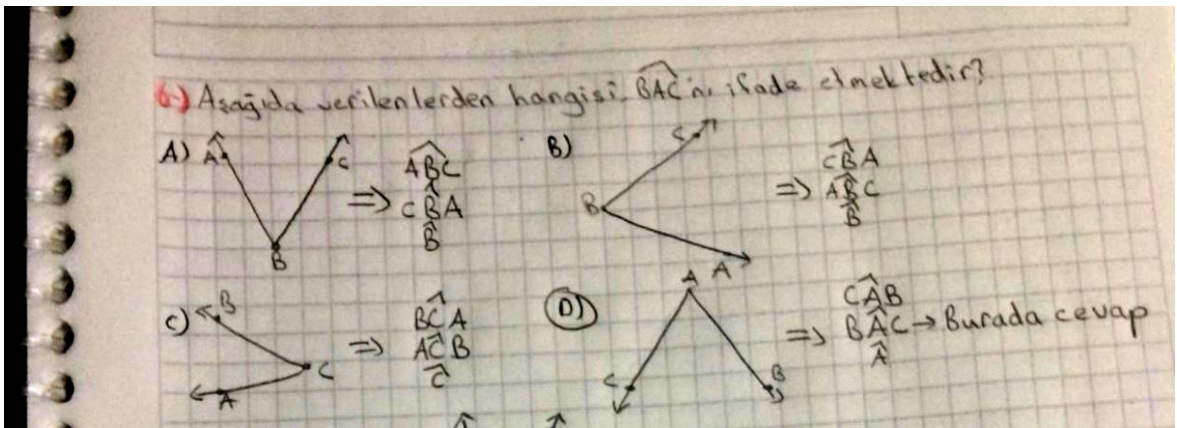 6-) Aşağıda verilenlerden hangisi BAC'nı ifade etmektedir?
A) A C B ⇒ ABC
CBA
B
B) C B A ⇒ CBA
ABC
B
C) B C A ⇒ BCA
ACB
C
D) A C B ⇒ CAB
BAC → Burada cevap
A